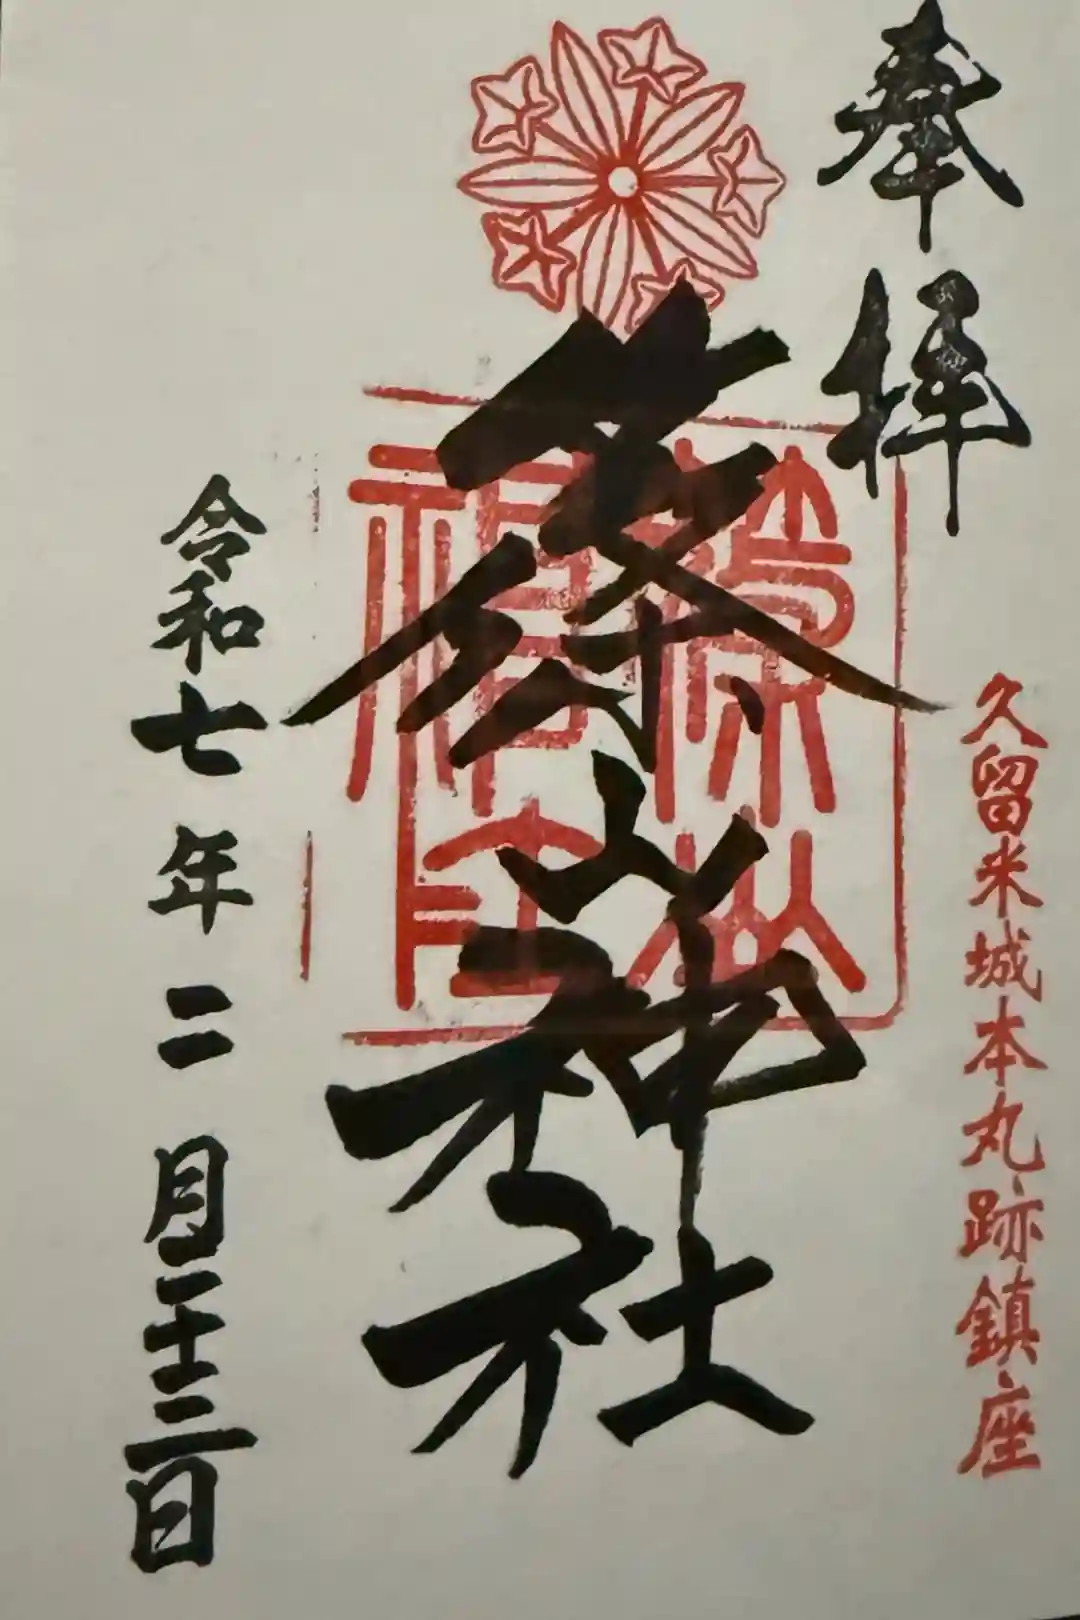 奉拝
久留米城本丸跡鎮座
篠山神社
令和七年二月二十三日